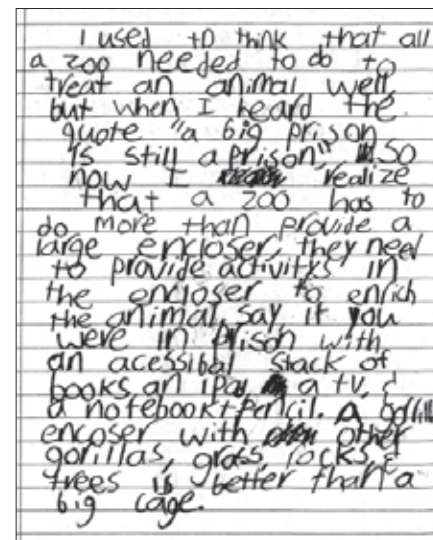 I used to think that all
a zoo needed to do to
treat an animal well,
but when I heard the
quote "a big prison
is still a prison", SO
now I realize
that a zoo has to
do more than provide a
large encloser, they need
to provide activitys in
the encloser to enrich
the animal, say if you
were in prison with
an acessibal stack of
books, an ipad a tv, &
a notebook+pencil. A gorilla
encoser with other
gorillas, grass, rocks &
trees is better than a
big cage.